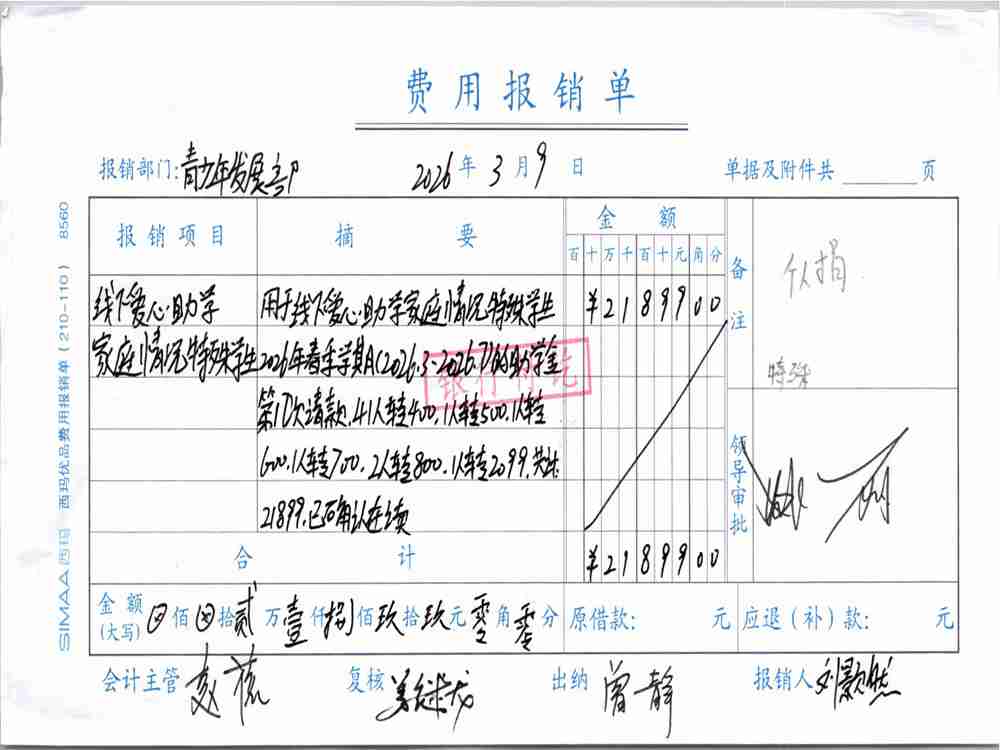 费用报销单
报销部门:青少年发展部 2026年3月9日 单据及附件共 页
报销项目 摘要 金额 备注
百十万千百十元角分
线下爱心助学 用于线下爱心助学家庭情况特殊学生 ¥2189900 个人捐
家庭情况特殊学生 2026年春季学期(2026.3-2026.7)的助学金 特殊
银行付讫
第1次请款,41人转400,1人转500,1人转
600,1人转700,2人转800,1人转2099,共计
21899,已确认连续
领导审批
合计 ¥2189900
金额(大写) 佰 拾贰万壹仟捌佰玖拾玖元零角零分 原借款: 元 应退(补)款: 元
会计主管 复核 出纳 曾静 报销人 刘颢然
SIMAA西玛 西玛优品费用报销单(210-110) 8560